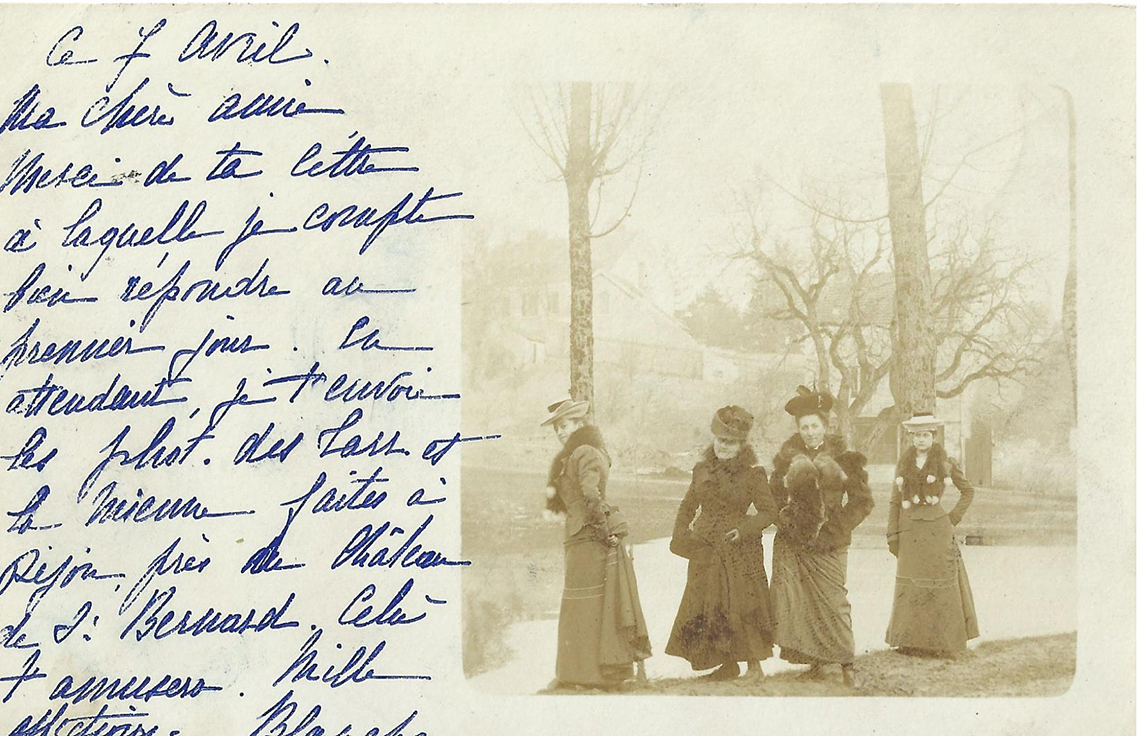 Ce 7 Avril.
Ma chère amie
Merci de ta lettre
à laquelle je compte
bien répondre au
premier jour. En
attendant, je t'envoie
les phot. des et
la mienne faites à
Dijon, près de Château
de St Bernard. Cela
t'amusera. Mille
affections. Blanche